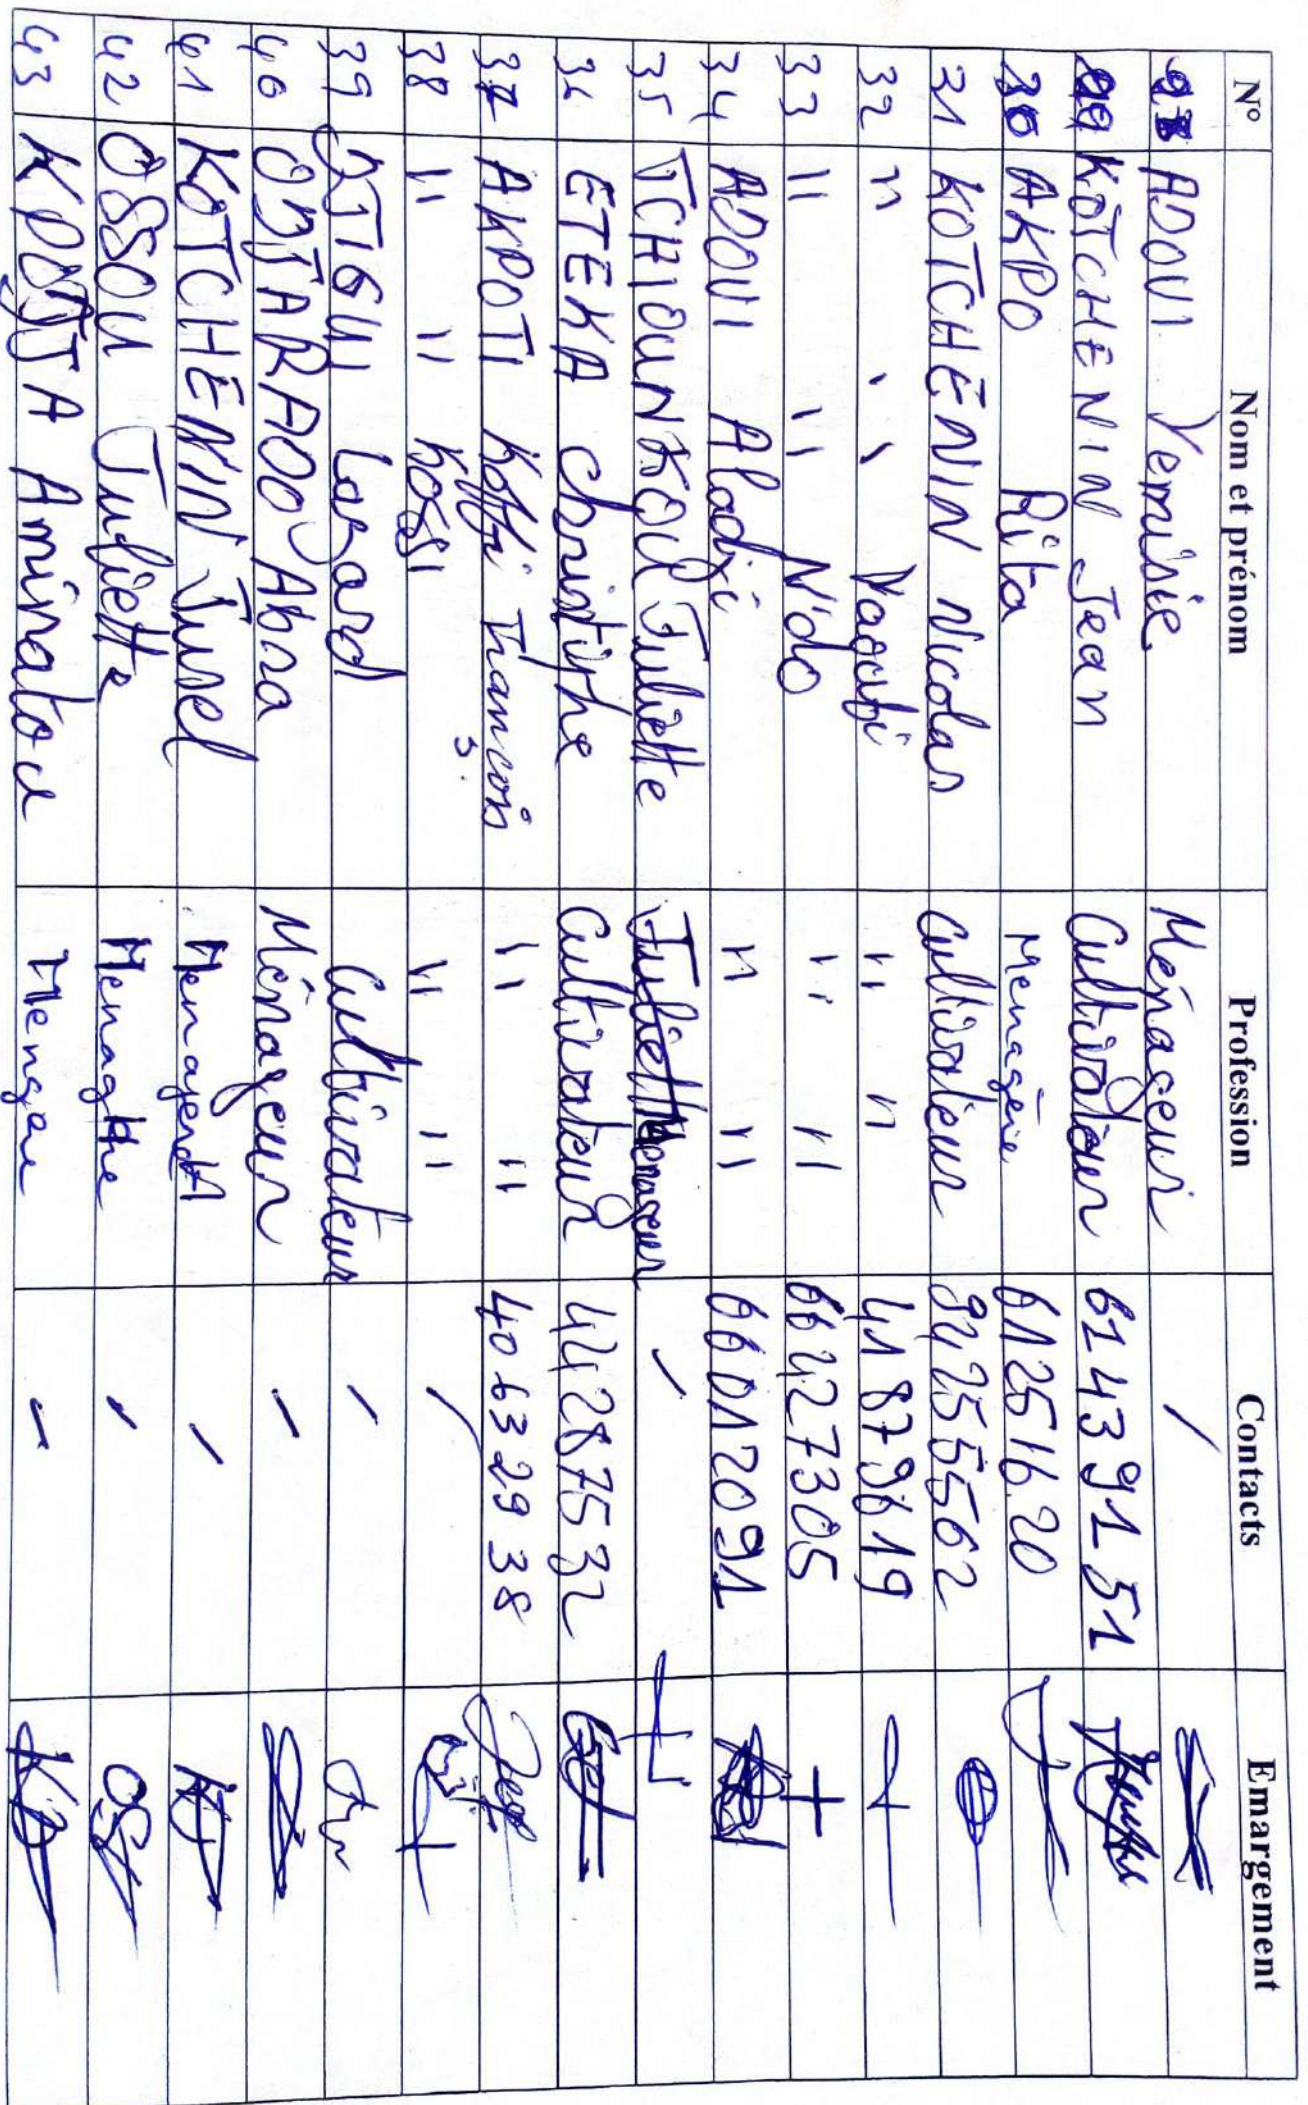 N° Nom et prénom Profession Contacts Emargement
ADOVI Yemisie Ménageur /
KOTCHENIN Jean Cultivateur 61 43 91 51
30 AKPO Rita Menagère 61251620
31 KOTCHENIN Nicolas Cultivateur 94255562
32 " " " " 41879619
33 " " N'do " " 66427305
34 ADOVI Aladji " " 66012091
35 TCHIOUNKOU Juliette Menageur /
36 ETEKA Christine Cultivateur 44287532
37 AKPOTI Koffi Francois " " 40 63 29 38
38 " " KOSSI " " /
39 Lazard Cultivateur /
40 Abra Ménageur /
41 KOTCHENIN /
42 OSSOU Juliette /
43 Aminatou /